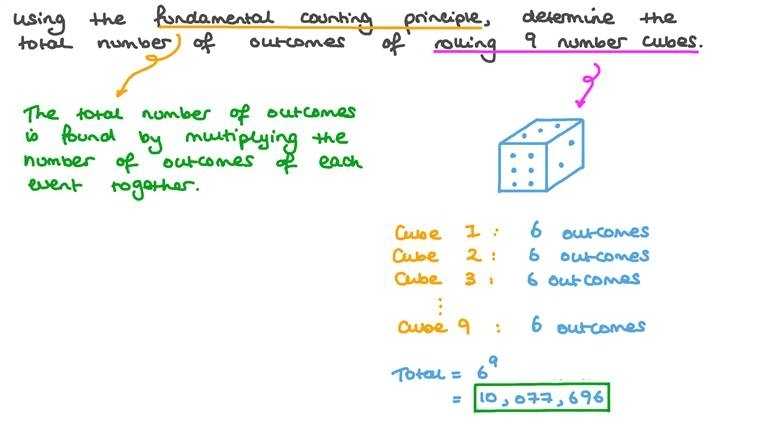 using the fundamental counting principle, determine the
total number of outcomes of rolling 9 number cubes.
The total number of outcomes
is found by multiplying the
number of outcomes of each
event together.
Cube 1 : 6 outcomes
Cube 2 : 6 outcomes
Cube 3 : 6 outcomes
⋮
Cube 9 : 6 outcomes
Total = 6⁹
= 10,077,696